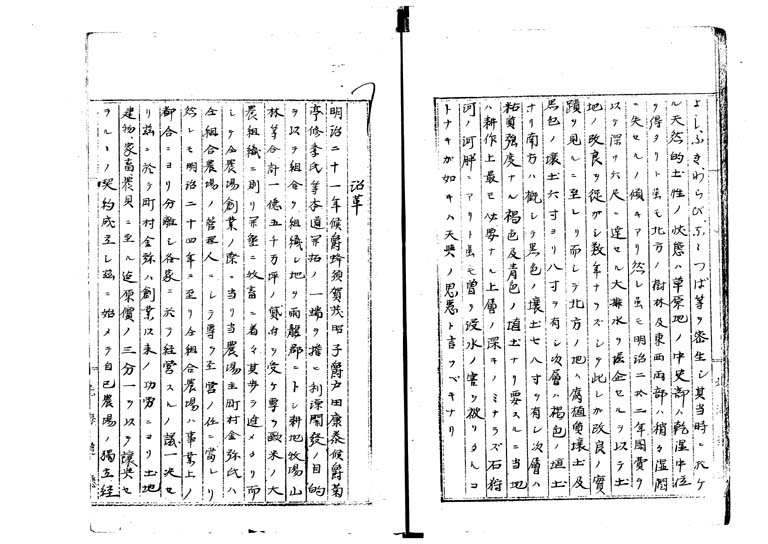 よしぶきわらびぶしつば等ヲ密生シ其当時ニ於ケ
ル天然的土性ノ状態ハ草原地ノ中央部ハ乾湿中位
ヲ得タリト虽モ北方ノ樹林及東西両部ハ稍々湿潤
ニ失セルノ傾キアリ然レ虽モ明治二十二年国費ヲ
以テ深サ六尺ニ達セル大排水ヲ堀企セルヲ以テ土
地ノ改良ヲ促ガシ数年ナラズシテ此レガ改良ノ實
蹟ヲ見ルニ至レリ而シテ北方ノ地ハ腐植質壌土及
黒色ノ壌土六寸ヨリ八寸ヲ有シ次層ハ褐色ノ埴土
ナリ南方ハ概シテ黒色ノ壌土七八寸ヲ有シ次層ハ
粘質強度ナル褐色及青色ノ埴土ナリ要スルニ当地
ハ耕作上最モ必要ナル上層ノ深キノミナラズ石狩
河ノ河畔ニアリト虽モ曽テ浸水ノ害ヲ被リタルコ
トナキガ如キハ天與ノ恩恵ト言フベキナリ
沿革
明治二十一年侯爵蜂須賀茂昭子爵戸田康泰侯爵菊
亭修季氏等本道開拓ノ一端ヲ擔ヒ利源開發ノ目的
ヲ以テ組合ヲ組織シ地ヲ雨龍郡ニトシ耕地牧場山
林等合計一億五千万坪ノ貸付ヲ受ケ專ラ欧米ノ大
農組織ニ則リ開墾ニ牧畜ニ着々其歩ヲ進メタリ而
シテ全農場創業ノ際ニ当リ当農場主町村金弥氏ハ
全組合農場ノ管理人トシテ專ラ主営ノ任ニ當レリ
然レモ明治二十四年ニ至リ全組合農場ハ事業上ノ
都合ニヨリ分離シ各家ニ於テ経営スルノ議一决セ
リ茲ニ於テ町村金弥ハ創業以来ノ功労ニヨリ土地
建物、家畜農具ニ至ル迄原價ノ三分一ヲ以テ讓與セ
ラルヽノ契約成立シ茲ニ始メテ自己農場ノ獨立経